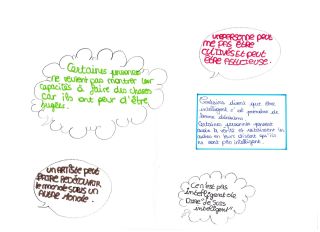 Certaines personnes
ne veulent pas montrer leur
capacités à faire des choses
car ils ont peur d'être
jugées.
UNE PERSONNE PEUT
NE PAS ÊTRE
CULTIVÉE ET PEUT
ÊTRE ASTUCIEUSE.
Certains disent que être
intelligent c'est prendre de
bonne décisions.
Certaines personnes pensent
avoir la vérité et
autres en leur disant qu'ils
ne sont pas intelligent.
UN ARTISTE PEUT
FAIRE REDÉCOUVRIR
LE MONDE SOUS UN
AUTRE MONDE.
Ce n'est pas
intelligent de
Dire "Je suis
intelligent"